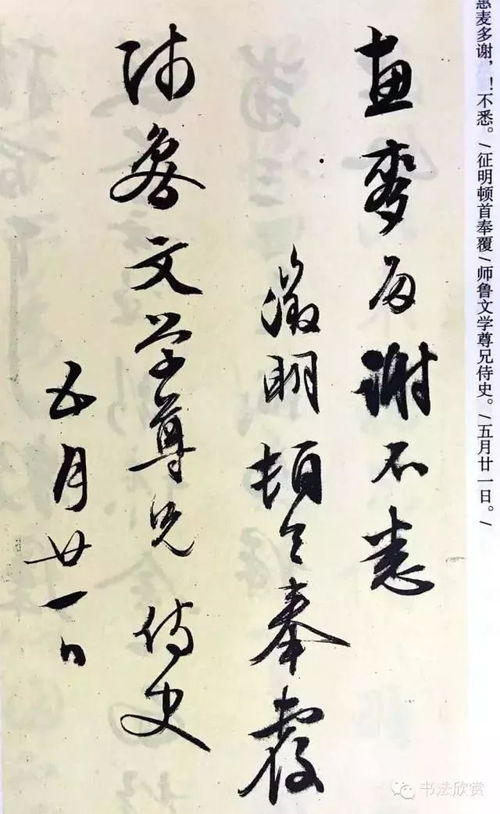 惠麦多谢，！不悉。/征明顿首奉覆/师鲁文学尊兄侍史。/五月廿一日。/
惠麥多謝不悉
徵明頓首奉覆
師魯文学尊兄侍史
五月廿一日
书法欣赏